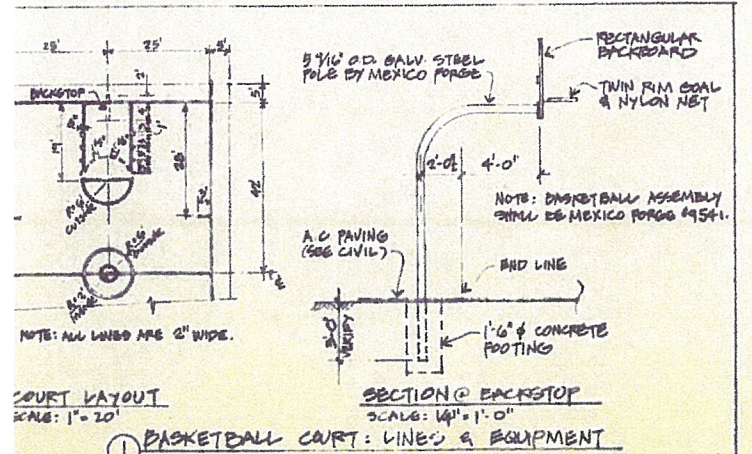 25'
25'
5'
BACKSTOP
2'
5'
19'
28'
42'
NOTE: ALL LINES ARE 2" WIDE.
COURT LAYOUT
SCALE: 1" = 20'
5 9/16" O.D. GALV. STEEL
POLE BY MEXICO FORGE
RECTANGULAR
BACKBOARD
TWIN RIM GOAL
& NYLON NET
4'-0"
NOTE: BASKETBALL ASSEMBLY
SHALL BE MEXICO FORGE #9541.
A.C. PAVING
(SEE CIVIL)
END LINE
3'-0"
VERIFY
1'-6" ϕ CONCRETE
FOOTING
SECTION @ BACKSTOP
SCALE: 1/4" = 1'-0"
1 BASKETBALL COURT: LINES & EQUIPMENT